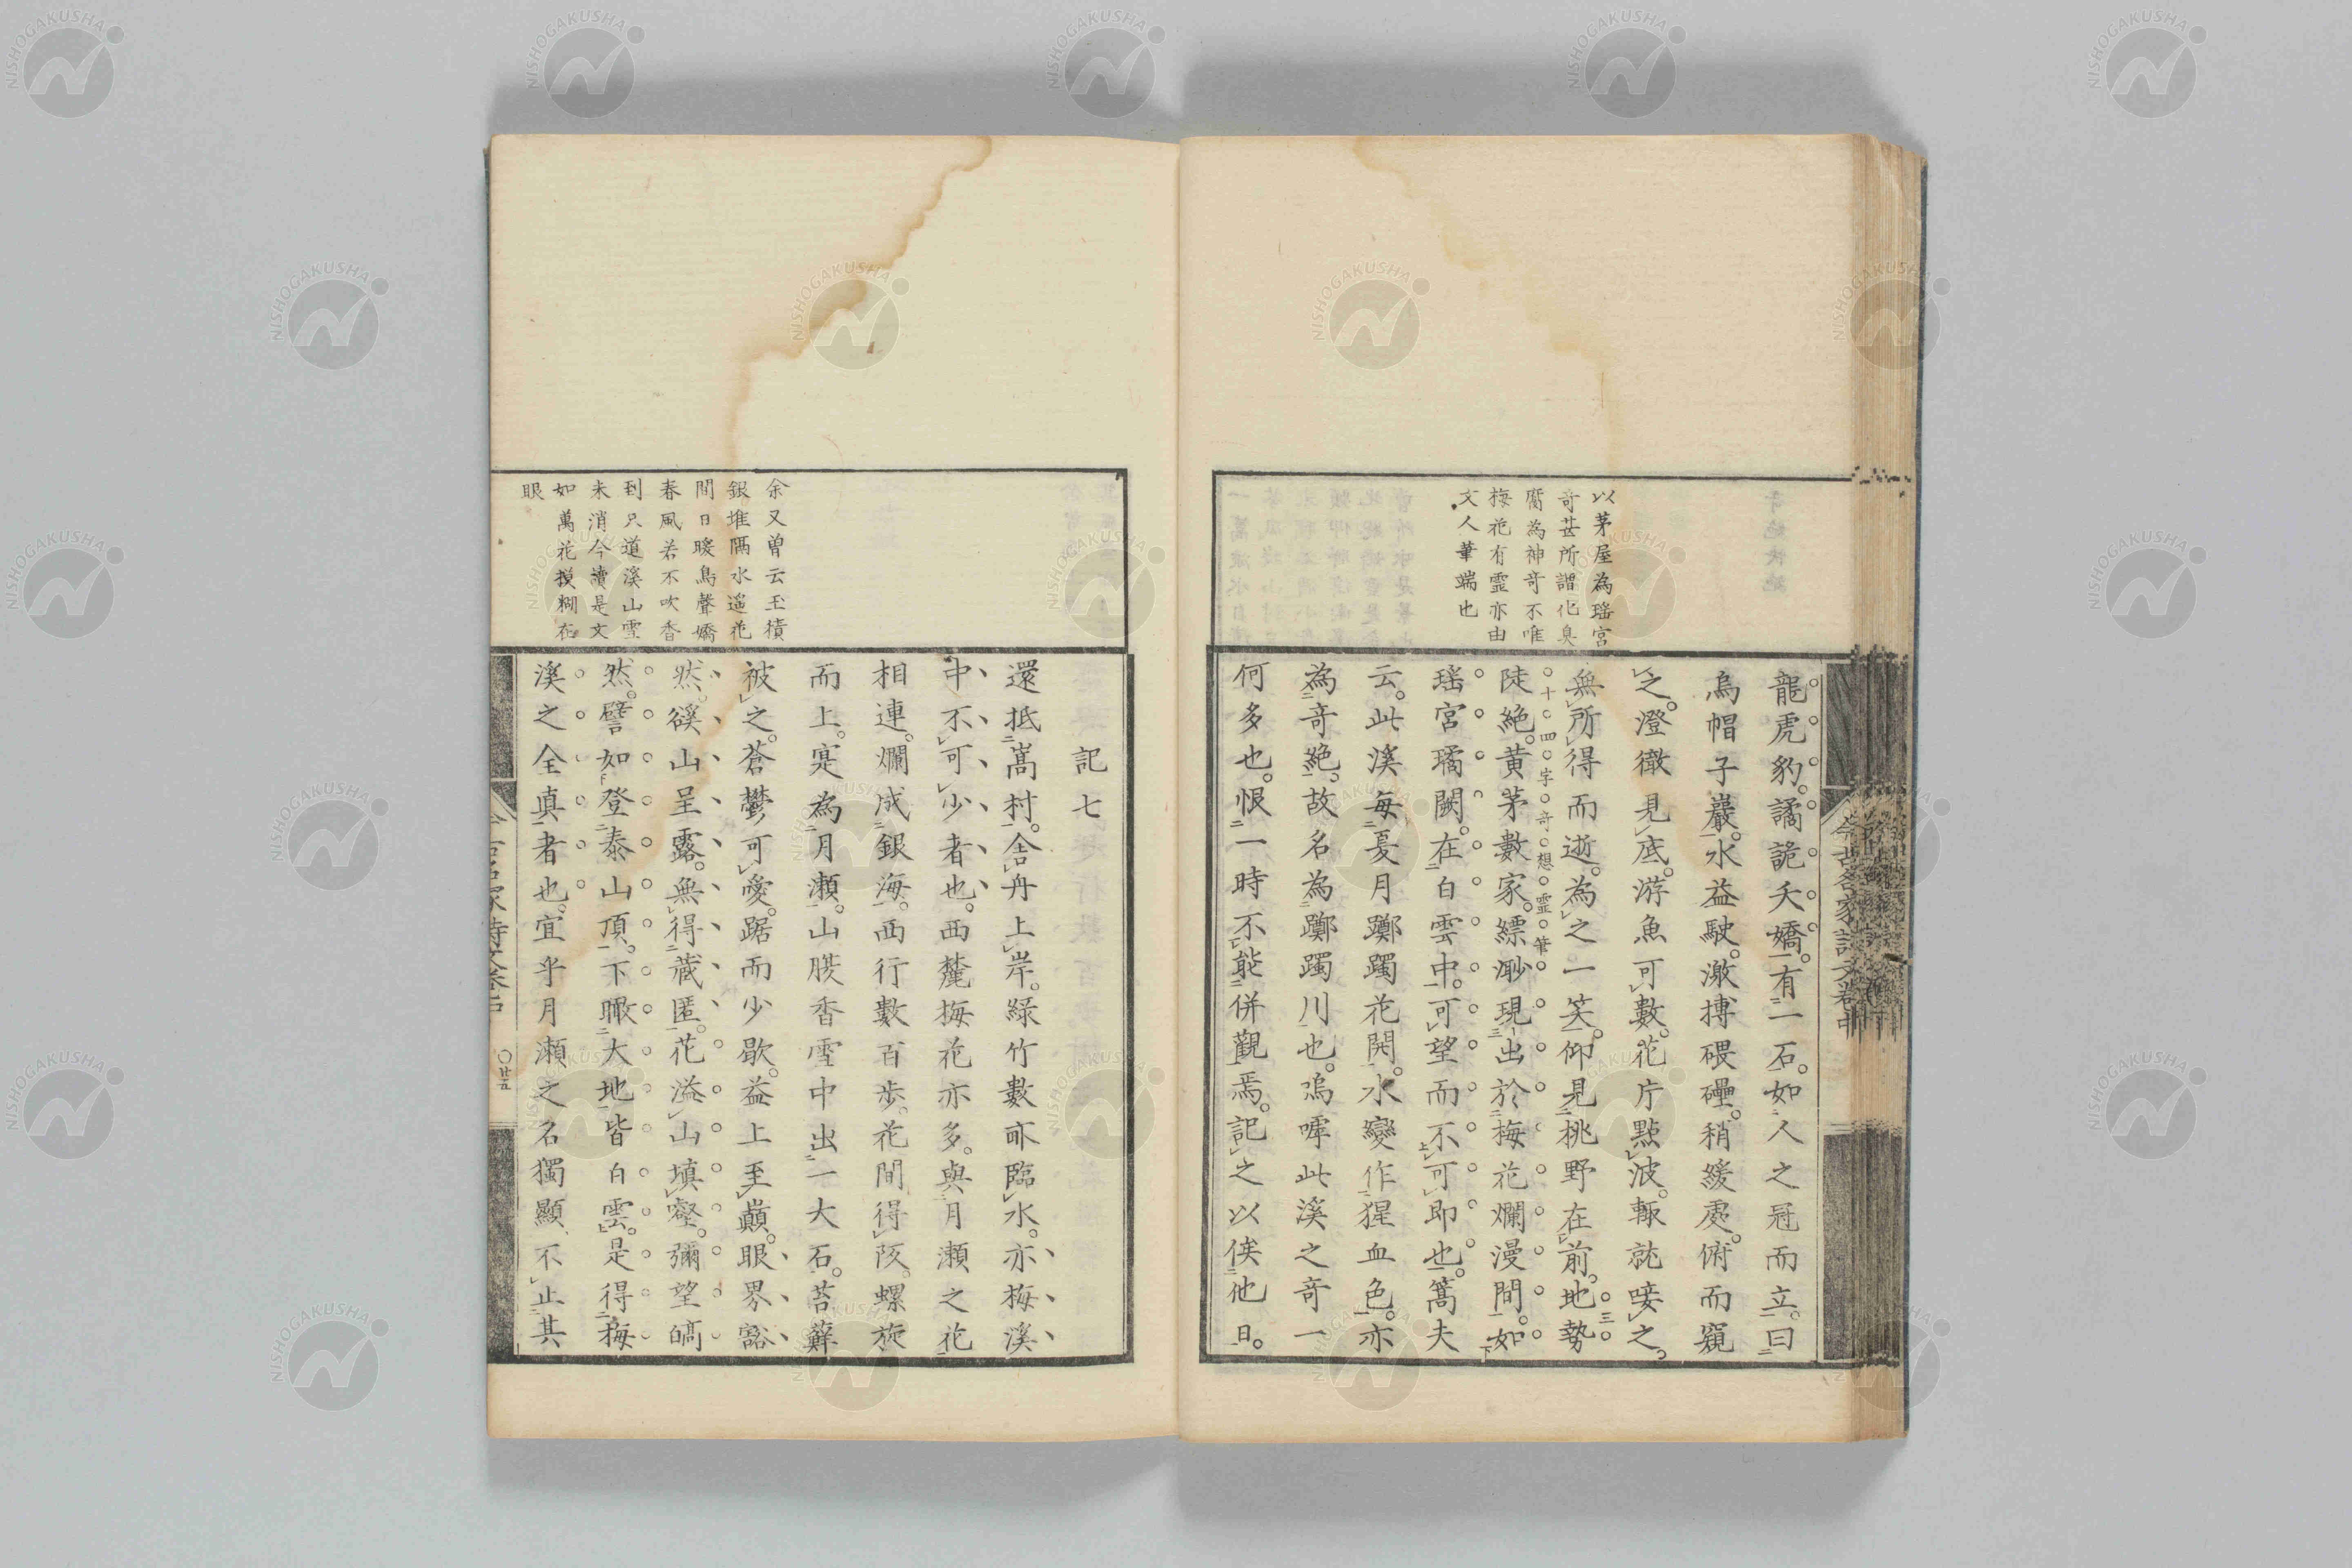 以茅屋為瑤宮
奇甚所謂化臭
腐為神奇不唯
梅花有霊亦由
文人筆端也
龍虎豹。譎詭夭嬌。有一石。如人之冠而立。曰
烏帽子巖。水益駛。激搏碨礧。稍緩處。俯而窺
之。澄徹見底。游魚可數。花片點波。輙就唼之。
無所得而逝。為之一笑。仰見桃野在前。地勢
三十四字奇想霊筆
陡絶。黄茅數家。縹渺現出於梅花爛漫間。如
瑤宮璚闕。在白雲中。可望而不可即也。篙夫
云。此溪每夏月躑躅花開。水變作猩血色。亦
為奇絶。故名為躑躅川也。嗚嘑此溪之奇一
何多也。恨一時不能併觀焉。記之以俟他日。
余又曽云玉積
銀堆隔水遥花
間日暖鳥聲嬌
春風若不吹香
到只道溪山雪
未消今讀是文
如萬花摸糊在
眼
記七
還抵嵩村。舎舟上岸。緑竹數畆臨水。亦梅溪
中不可少者也。西麓梅花亦多。與月瀬之花
相連。爛成銀海。西行數百歩。花間得阪。螺旋
而上。寔為月瀬。山腰香雪中出一大石。苔蘚
被之。蒼鬱可愛。踞而少歇。益上至巔。眼界豁
然。磎山呈露。無得蔵匿。花溢山填壑。彌望皜
然。譬如登泰山頂。下瞰大地皆白雲。是得梅
溪之全真者也。宜乎月瀬之名獨顯。不止其